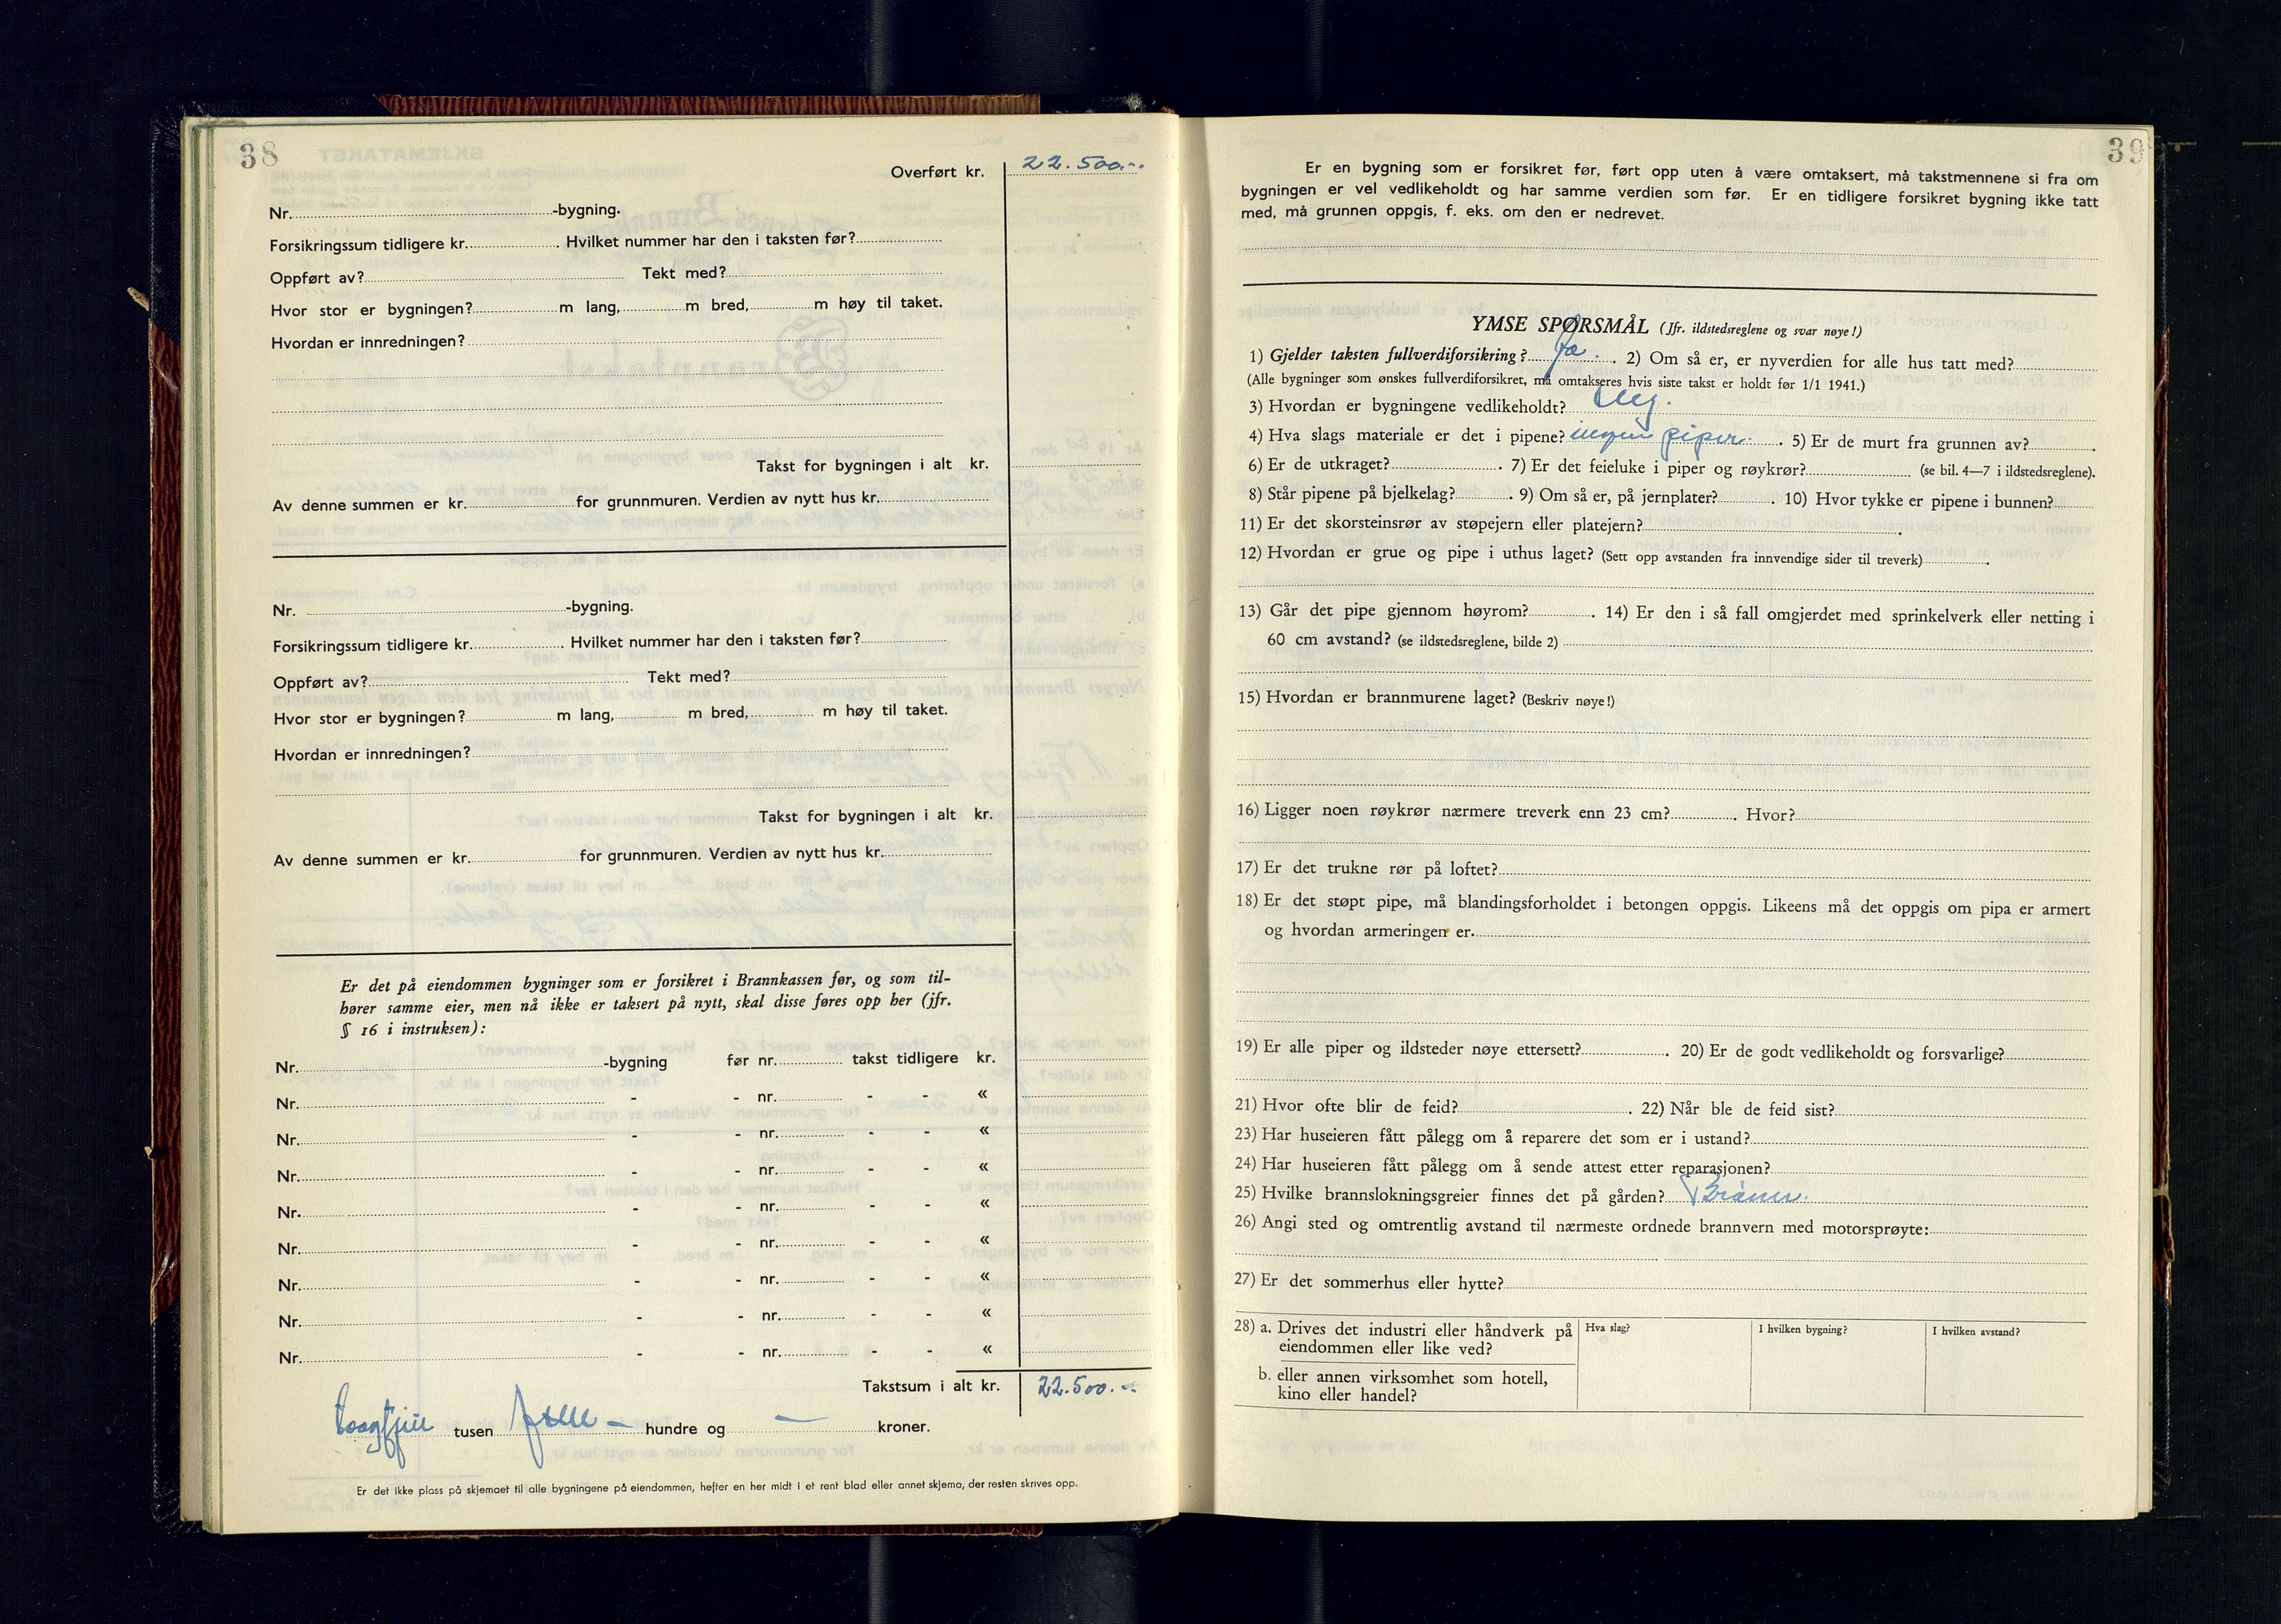 38
Overført kr. 22.500.--
Nr. -bygning.
Forsikringssum tidligere kr. . Hvilket nummer har den i taksten før?
Oppført av? Tekt med?
Hvor stor er bygningen? m lang, m bred, m høy til taket.
Hvordan er innredningen?
Takst for bygningen i alt kr.
Av denne summen er kr. for grunnmuren. Verdien av nytt hus kr.
Nr. -bygning.
Forsikringssum tidligere kr. . Hvilket nummer har den i taksten før?
Oppført av? Tekt med?
Hvor stor er bygningen? m lang, m bred, m høy til taket.
Hvordan er innredningen?
Takst for bygningen i alt kr.
Av denne summen er kr. for grunnmuren. Verdien av nytt hus kr.
Er det på eiendommen bygninger som er forsikret i Brannkassen før, og som til-
hører samme eier, men nå ikke er taksert på nytt, skal disse føres opp her (jfr.
§ 16 i instruksen):
Nr. -bygning før nr. takst tidligere kr.
Nr. - - nr. - - «
Nr. - - nr. - - «
Nr. - - nr. - - «
Nr. - - nr. - - «
Nr. - - nr. - - «
Nr. - - nr. - - «
Nr. - - nr. - - «
Nr. - - nr. - - «
Takstsum i alt kr. 22.500.--
tusen hundre og — kroner.
Er det ikke plass på skjemaet til alle bygningene på eiendommen, hefter en her midt i et rent blad eller annet skjema, der resten skrives opp.
39
Er en bygning som er forsikret før, ført opp uten å være omtaksert, må takstmennene si fra om
bygningen er vel vedlikeholdt og har samme verdien som før. Er en tidligere forsikret bygning ikke tatt
med, må grunnen oppgis, f. eks. om den er nedrevet.
YMSE SPØRSMÅL (Jfr. ildstedsreglene og svar nøye!)
1) Gjelder taksten fullverdiforsikring? Ja. . 2) Om så er, er nyverdien for alle hus tatt med?
(Alle bygninger som ønskes fullverdiforsikret, må omtakseres hvis siste takst er holdt før 1/1 1941.)
3) Hvordan er bygningene vedlikeholdt?
4) Hva slags materiale er det i pipene? ingen piper. . 5) Er de murt fra grunnen av? .
6) Er de utkraget? . 7) Er det feieluke i piper og røykrør? (se bil. 4—7 i ildstedsreglene).
8) Står pipene på bjelkelag? . 9) Om så er, på jernplater? . 10) Hvor tykke er pipene i bunnen?
11) Er det skorsteinsrør av støpejern eller platejern? .
12) Hvordan er grue og pipe i uthus laget? (Sett opp avstanden fra innvendige sider til treverk) .
13) Går det pipe gjennom høyrom? . 14) Er den i så fall omgjerdet med sprinkelverk eller netting i
60 cm avstand? (se ildstedsreglene, bilde 2)
15) Hvordan er brannmurene laget? (Beskriv nøye!)
16) Ligger noen røykrør nærmere treverk enn 23 cm? . Hvor?
17) Er det trukne rør på loftet?
18) Er det støpt pipe, må blandingsforholdet i betongen oppgis. Likeens må det oppgis om pipa er armert
og hvordan armeringen er.
19) Er alle piper og ildsteder nøye ettersett? . 20) Er de godt vedlikeholdt og forsvarlige?
21) Hvor ofte blir de feid? . 22) Når ble de feid sist?
23) Har huseieren fått pålegg om å reparere det som er i ustand?
24) Har huseieren fått pålegg om å sende attest etter reparasjonen?
25) Hvilke brannslokningsgreier finnes det på gården?
26) Angi sted og omtrentlig avstand til nærmeste ordnede brannvern med motorsprøyte:
27) Er det sommerhus eller hytte?
28) a. Drives det industri eller håndverk på
eiendommen eller like ved?
b. eller annen virksomhet som hotell,
kino eller handel?
Hva slag?
I hvilken bygning?
I hvilken avstand?